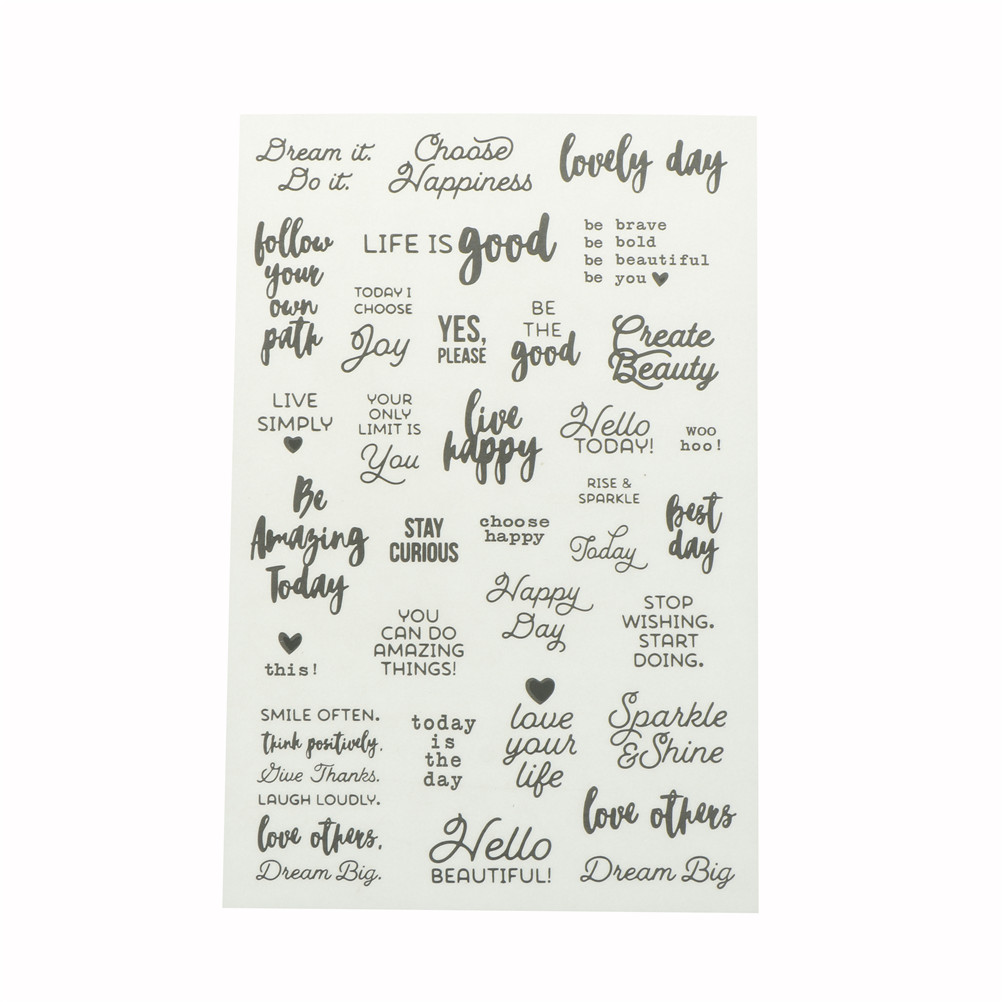 Dream it.
Do it.
Choose
Happiness
lovely day
follow
your
own
path
LIFE IS good
be brave
be bold
be beautiful
be you
TODAY I
CHOOSE
Joy
YES,
PLEASE
BE
THE
good
Create
Beauty
LIVE
SIMPLY
YOUR
ONLY
LIMIT IS
You
live
happy
Hello
TODAY!
woo
hoo!
Be
Amazing
Today
STAY
CURIOUS
choose
happy
RISE &
SPARKLE
Today
best
day
this!
YOU
CAN DO
AMAZING
THINGS!
Happy
Day
STOP
WISHING.
START
DOING.
SMILE OFTEN.
Think positively.
Give Thanks.
LAUGH LOUDLY.
love others.
Dream Big.
today
is
the
day
love
your
life
Sparkle
& Shine
Hello
BEAUTIFUL!
love others
Dream Big